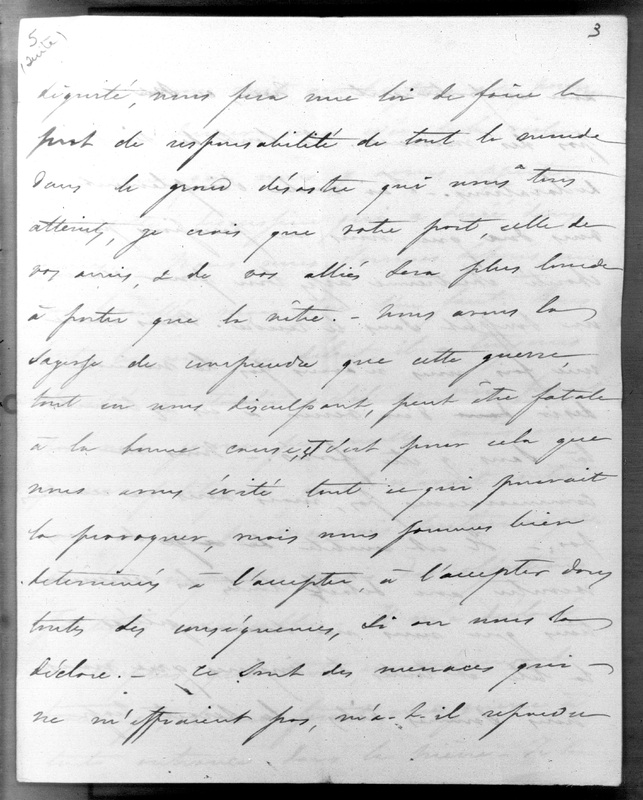 5 3
(suite)
dignité, nous fera une loi de faire la
part de responsabilité de tout le monde
dans le grand désastre qui nous a tous
atteints, je crois que votre part, celle de
vos amis, & de vos alliés sera plus lourde
à porter que la nôtre. - Nous avons la
sagesse de comprendre que cette guerre,
tout en nous disculpant, peut être fatale
à la bonne cause, & c'est pour cela que
nous avons évité tout ce qui pouvait
la provoquer, mais nous sommes bien
déterminés à l'accepter, à l'accepter dans
toutes des conséquences, si on nous la
déclare. - Ce sont des menaces qui
ne m'effraient pas, m'a-t-il répondu